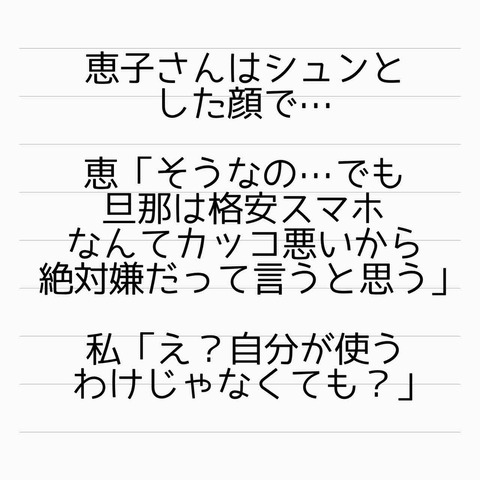 恵子さんはシュンと
した顔で…
恵「そうなの…でも
旦那は格安スマホ
なんてカッコ悪いから
絶対嫌だって言うと思う」
私「え？自分が使う
わけじゃなくても？」